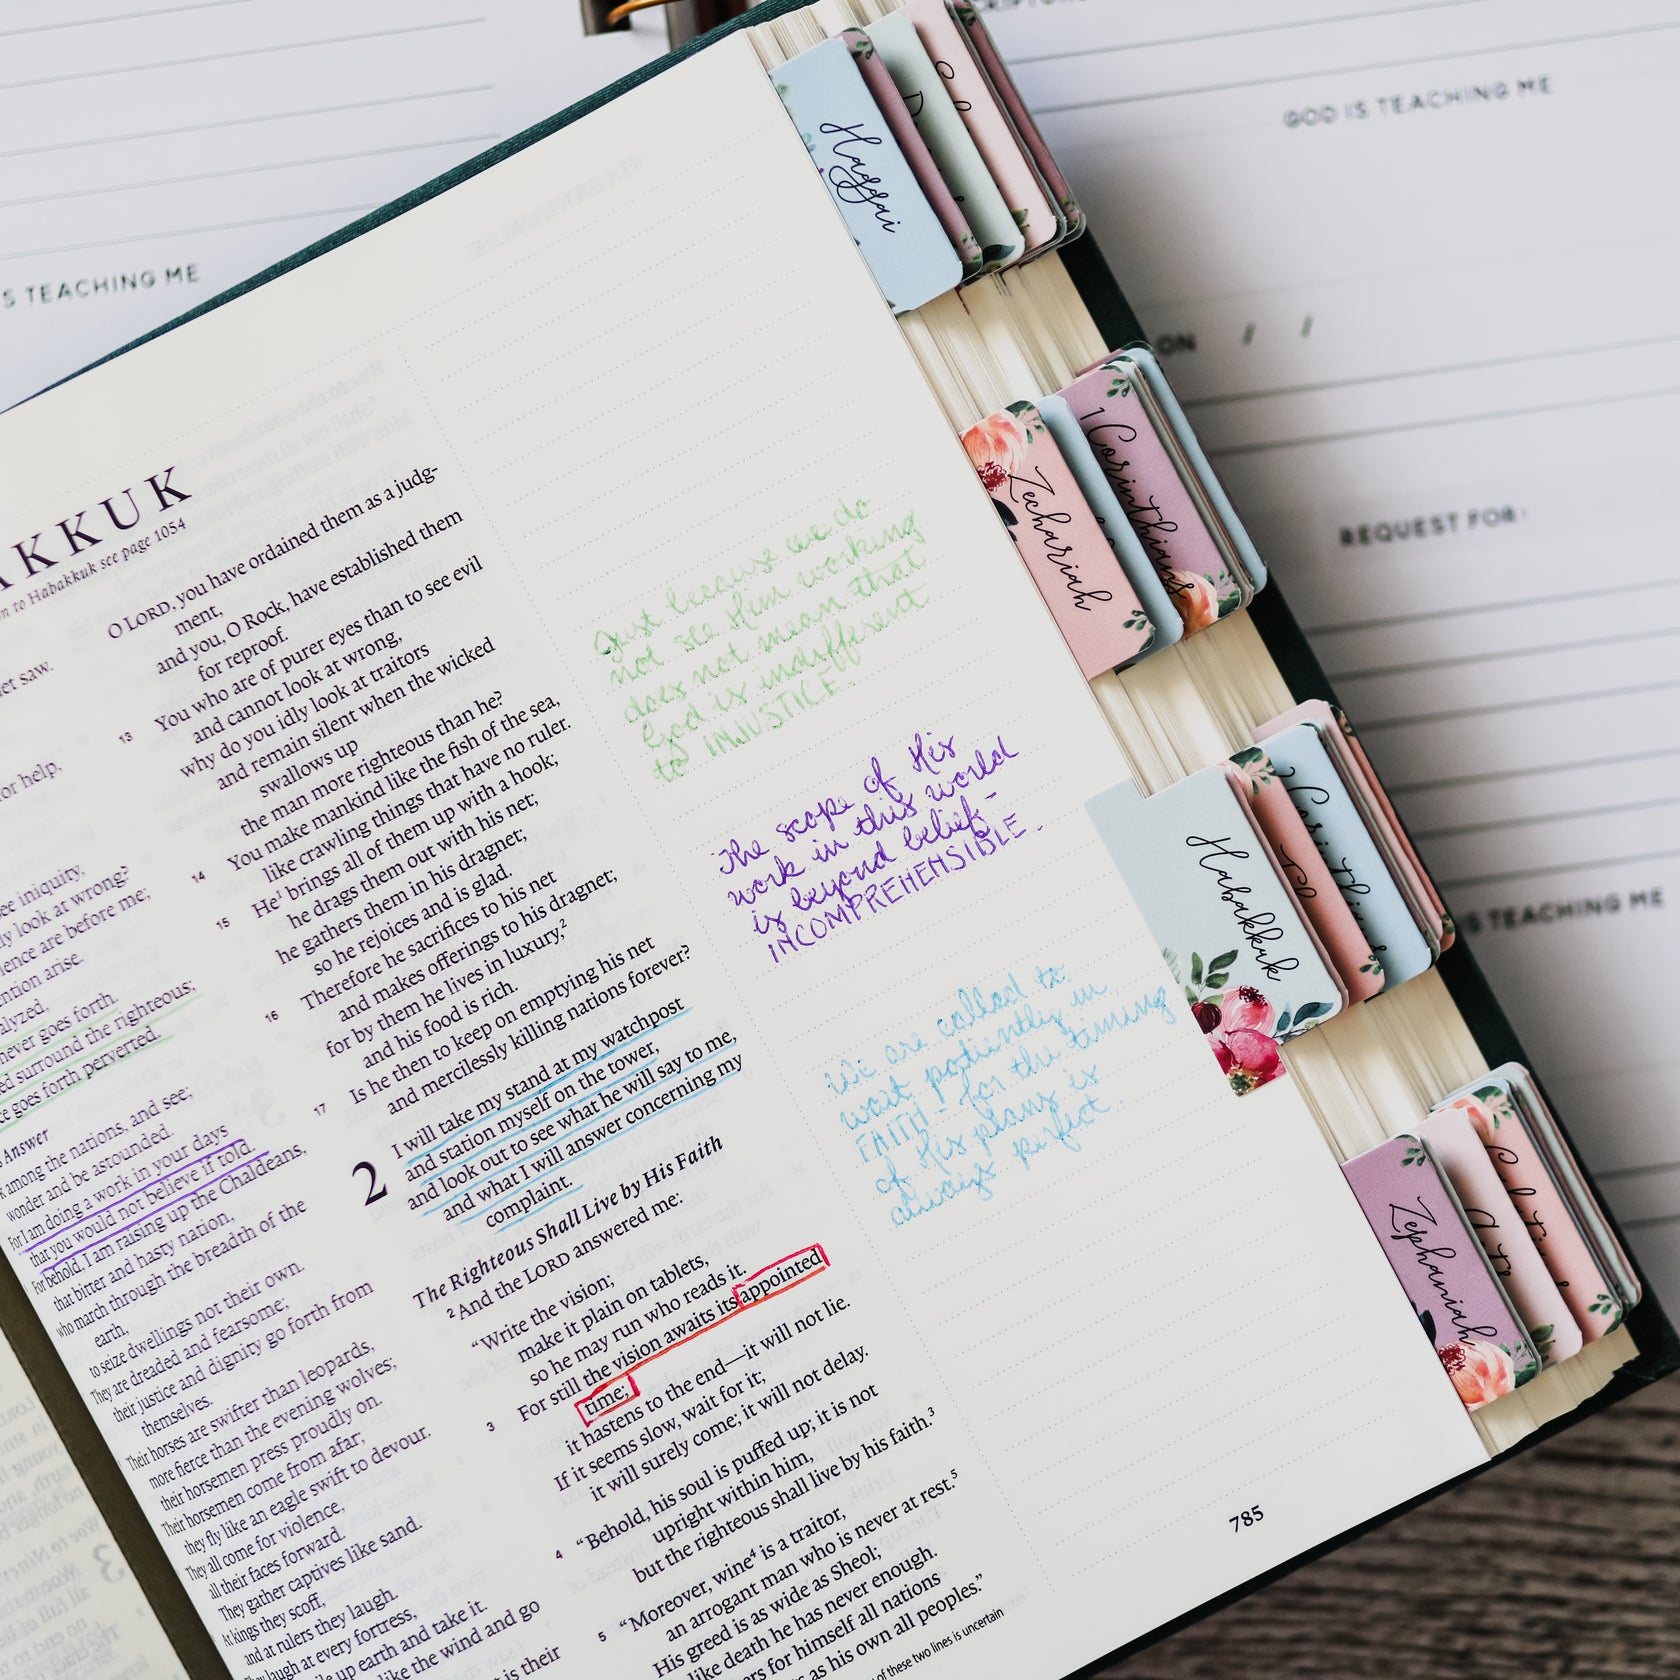 AKKUK
n to Habakkuk see page 1054
et saw.
or help,
ee iniquity,
ly look at wrong?
ence are before me;
ntion arise.
alyzed.
never goes forth.
ed surround the righteous;
ce goes forth perverted.
Answer
among the nations, and see;
wonder and be astounded.
For I am doing a work in your days
that you would not believe if told.
For behold, I am raising up the Chaldeans,
that bitter and hasty nation,
who march through the breadth of the
earth,
to seize dwellings not their own.
They are dreaded and fearsome;
their justice and dignity go forth from
themselves.
Their horses are swifter than leopards,
more fierce than the evening wolves;
their horsemen press proudly on.
Their horsemen come from afar;
they fly like an eagle swift to devour.
They all come for violence,
all their faces forward.
They gather captives like sand.
At kings they scoff,
and at rulers they laugh.
They laugh at every fortress,
le up earth and take it.
like the wind and go
is their
O LORD, you have ordained them as a judg-
ment,
and you, O Rock, have established them
for reproof.
13 You who are of purer eyes than to see evil
and cannot look at wrong,
why do you idly look at traitors
and remain silent when the wicked
swallows up
the man more righteous than he?
14 You make mankind like the fish of the sea,
like crawling things that have no ruler.
15 He¹ brings all of them up with a hook;
he drags them out with his net;
he gathers them in his dragnet;
so he rejoices and is glad.
16 Therefore he sacrifices to his net
and makes offerings to his dragnet;
for by them he lives in luxury,²
and his food is rich.
17 Is he then to keep on emptying his net
and mercilessly killing nations forever?
2 I will take my stand at my watchpost
and station myself on the tower,
and look out to see what he will say to me,
and what I will answer concerning my
complaint.
The Righteous Shall Live by His Faith
² And the LORD answered me:
"Write the vision;
make it plain on tablets,
so he may run who reads it.
3 For still the vision awaits its appointed
time;
it hastens to the end—it will not lie.
If it seems slow, wait for it;
it will surely come; it will not delay.
4 "Behold, his soul is puffed up; it is not
upright within him,
but the righteous shall live by his faith.³
5 "Moreover, wine⁴ is a traitor,
an arrogant man who is never at rest.⁵
His greed is as wide as Sheol;
like death he has never enough.
ers for himself all nations
s as his own all peoples."
of these two lines is uncertain
785
Just because we do
not see Him working
does not mean that
God is indifferent
to INJUSTICE.
The scope of His
work in this world
is beyond belief-
INCOMPREHENSIBLE.
We are called to
wait patiently in
FAITH - for the timing
of His plans is
always perfect.
Haggai
Zechariah
1 Corinthians
Habakkuk
Zephaniah
S TEACHING ME
GOD IS TEACHING ME
ON / /
REQUEST FOR:
IS TEACHING ME